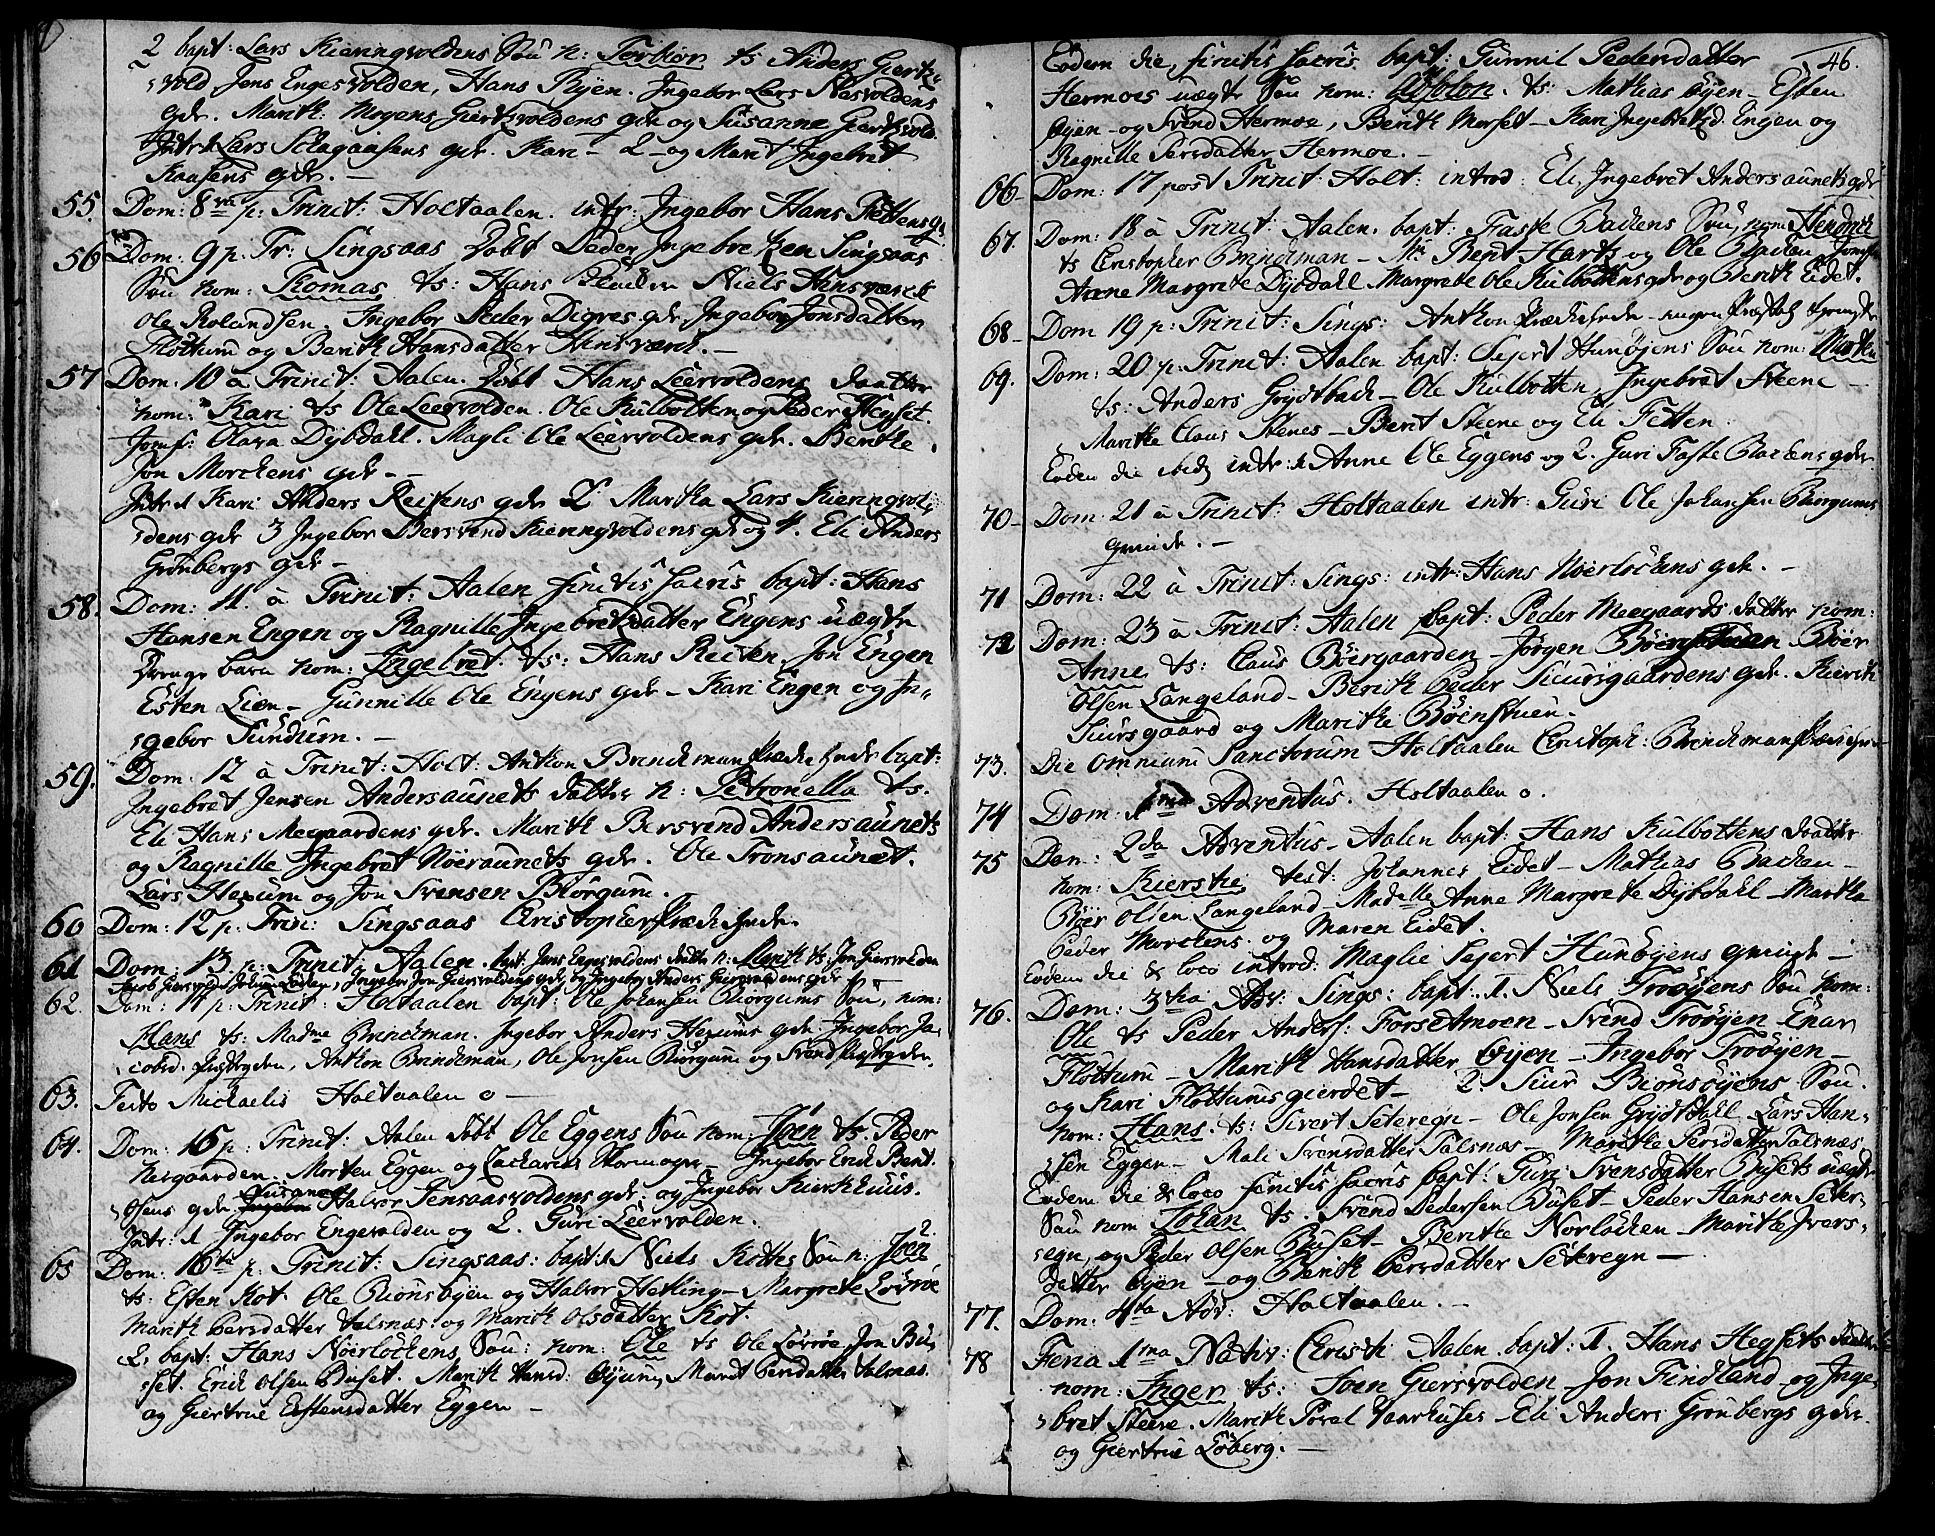 2 bapt: Lars Kieringvoldens Sön n: Torbiör ts Anders Giert-
svold Jens Engesvolden, Hans Ryen. Ingebor Lars Næsvoldens
gdr. Marith Mogens Giertsvoldens gdr og Susanne Giertsvold
Intr: 1 Lars gdr. Kari - 2 - og Marit Ingebret
gdr. -
55. Dom: 8va p: Trinit: Holtaalen. intr: Ingebor Hans Fettens g.
56 Dom. 9 p: Tr: Singsaas Döbt Peder Ingebre Singsaas
Sön nom: Tomas ts: Hans Niels Hinsværck
Ole Rolandsen. Ingebor Peder Digres gdr. Ingebor Jonsdatter
Flottum og Berith Hansdatter Hinsværk. -
57 Dom: 10 a Trinit: Aalen. Döbt Hans Leervoldens daatter
nom: Kari ts Ole Leervolden. Ole Kulbotten og Peder Hegset.
Jomf: Clara Dybdall. Magli Ole Leervoldens gdr. Berithe
Jon Morckens gdr -
Intr 1 Kari Anders Reitens gdr 2 Maritha Lars Kieringvol-
dens gdr 3 Ingebor Bersvend Kieringvoldens gdr og 4. Eli Anders
Grönbergs gdr -
58. Dom: 11. a Trinit: Aalen finitis sacris bapt: Hans
Hansen Engen og Ragnille Ingebretsdatter Engens uægte
Drenge barn nom: Ingebret. ts: Hans Reiten, Jon Engen
Esten Lien - Gunnille Ole Engens gdr - Kari Engen og In-
gebor Sundum. -
59. Dom. 12 a Trinit: Holt: Anthon Brinchman bapt:
Ingebret Jensen Andersaunets datter n: Petronella ts.
Eli Hans Meegaardens gdr. Marith Bersvend Andersaunets
og Ragnille Ingebret Nöeraunets gdr. Ole Tronsaunet.
Lars Hexum og Jon Svensen Börgum.
60 Dom: 12 p. Trin: Singsaas Christopher
61 Dom. 13 p: Trinit: Aalen. bapt: Jens Engesvoldens datter n: Marith ts: Jon Giersvolden
Jacob Giersvold Ingebor Jon Giersvoldens gdr og Ingebor Anders Giersvoldens gdr
62. Dom: 14 p: Trinit: Holtaalen bapt: Ole Johansen Börgums Sön, nom:
Hans ts: Madme Brinchman. Ingebor Anders Hexums gdr. Ingebor Ja-
cobsd. Anthon Brinchman, Ole Jonsen Börgum og Svend
63. Festo Michaelis Holtaalen 0 -
64. Dom: 15 p: Trinit: Aalen Döbt Ole Eggens Sön nom: Joen ts. Peder
Næsgaarden. Morten Eggen og Zacharias Ingebor Erich Bent-
sens gdr Susanne Halvor Jensaasvoldens gdr. og Ingebor Kierkhuus.
Intr: 1 Ingebor Engesvolden og 2. Guri Leervolden.
65 Dom: 16de p. Trinit: Singsaas: bapt: 1 Niels Kottes Sön n: Joen
ts: Esten Kot. Ole Biönsöyen og Halvor Hetling - Margrete Lövröe
Marith Persdatter talsnæs. og Marith Olsdatter Kot.
2. bapt: Hans Nöerlöckens Sön: nom: Ole ts Ole Lövröe, Jon Bu-
set. Erich Olsen Buset. Marith Hansd: Öyen, Marit Persdatter talsnæs.
og Giertrue Estensdatter Eggen -
46.
Eodem die, finitis sacris bapt: Gunnil Pedersdatter
Hermoes uægte Sön nom: ts: Mathias Öyen - Esten
Öyen - og Svend Hermoe, Berith Morset - Kari Ingebretsd. Engen og
Ragnille Persdatter Hermoe. -
66 - Dom: 17 post Trinit: Holt: introd: Eli Ingebret Andersaunets gdr
67. Dom: 18 a Trinit: Aalen. bapt: Faste Backens Sön, nom: Hendrich
ts Christopher Brinchman - Mr. Bent Harts og Ole Backen - Jomfr:
Anne Margrete Dybdall Margrete Ole Kulbottens gdr og Berith Eidet.
68 - Dom 19 p: Trinit: Sings: Anthon
69. Dom: 20 p: Trinit: Aalen bapt: Sejert Hunöjens Sön nom:
ts: Anders Grydtbach - Ole Kulbotten, Ingebret Steene -
Marithe Claus Stenes - Berit Steene og Eli Fetten.
Eodem die ibid intr: 1 Anne Ole Eggens og 2. Guri Faste Backens gdr
70 - Dom: 21 a Trinit: Holtaalen intr: Guri Ole Johansen Börgums
qvinde. -
71 Dom: 22 a Trinit: Sings: intr: Hans Nöerlöckens gdr. -
72 Dom: 23 a Trinit: Aalen bapt: Peder Meegaards datter nom:
Anne ts: Claus Böergaarden - Jörgen Böer
Olsen Langeland - Berith Peder Siursgaardens gdr. Kiersti
Siursgaard og Marithe Böenstuen.
73. Die omnium Sanctorum Holtaalen Christoph: Brinchman
74 Dom: 1ma Adventus. Holtaalen 0.
75 Dom: 2da Adventus - Aalen bapt: Hans Kulbottens datter
nom: Kierstie test: Johannes Eidet - Mathias Backen -
Böer Olsen Langeland - Madelle Anne Margrete Dybdahl - Maritha
Peder Morckens. og Maren Eidet.
Eodem die & loco introd: Maglie Sejert Hunöyens qvinde -
76. Dom: 3tia Adv: Sings: bapt: 1. Niels Trööyens Sön nom:
Ole ts Peder Anders: Forsetmoen - Svend Trööyen Enar
Flottum - Marith Hansdatter Öyen - Ingebor Trööyen -
og Kari Flottumsgierdet - 2. Siur Biönsöyens Sön.
nom: Hans. ts: Sivert Seteregn - Ole Jonsen Grydtdall - Lars Han-
sen Eggen - Mali Svensdatter Talsnæs - Marithe Persdatter Talsnæs
Eodem die & loco finitis sacris bapt: Guri Svensdatter Busets uægte
Sön nom Johan ts. Svend Pedersen Buset - Peder Hansen Seter-
egn, og Peder Olsen Buset - Berithe Norlöcken - Marithe Ivers-
datter Öyen - og Berith Persdatter Seteregn -
77. Dom: 4ta Adv: Holtaalen. -
78 Feria 1ma Nativ: Christi Aalen. bapt: 1. Hans Hegsets datter
nom: Inger ts: Joen Giersvolden Jon Findland - og Inge-
bret Steene. Marith Povel Aarhuses - Eli Anders Grönbergs gdr.
og Giertrue Löberg. -